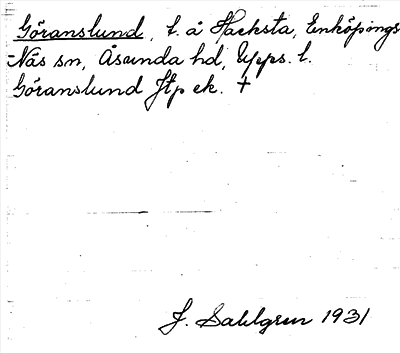 Göranslund, t. å Hacksta, Enköpings-
Näs sn, Åsunda hd, Upps. l.
Göranslund Jtp ek. +
J. Sahlgren 1931